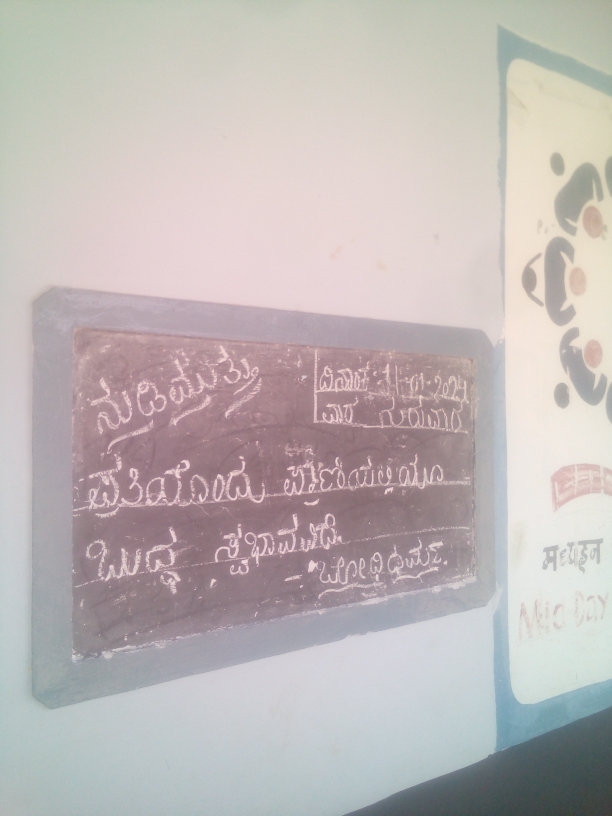 ನುಡಿಮುತ್ತು
ದಿನಾಂಕ : 11-01-2024
ವಾರ ಗುರುವಾರ
ಪ್ರತಿಯೊಂದು ಪ್ರಾಣಿಯಲ್ಲಿಯೂ
ಬುದ್ಧ ಸ್ವಭಾವವಿದೆ.
- ಬೋಧಿ ಧರ್ಮ.
मध्याहन
Mid Day